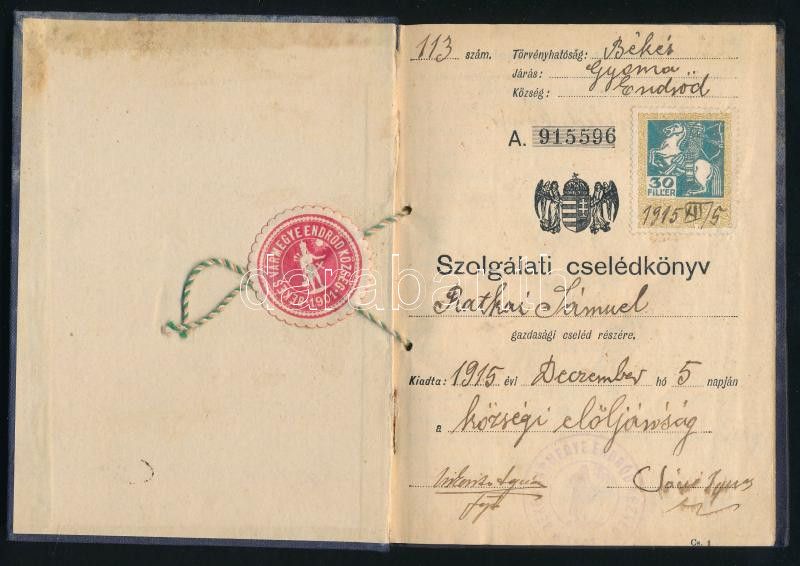 BÉKÉS VÁRMEGYE ENDRŐD KÖZSÉG
1901
113 szám.
Törvényhatóság: Békés
Járás: Gyoma
Község: Endrőd
A. 915596
30
FILLÉR
1915 XII/5
Szolgálati cselédkönyv
Ratkai Sámuel
gazdasági cseléd részére.
Kiadta: 1915 évi Deczember hó 5 napján
a községi elöljáróság
VÁRMEGYE ENDRŐD
Cs. 1
darabanth